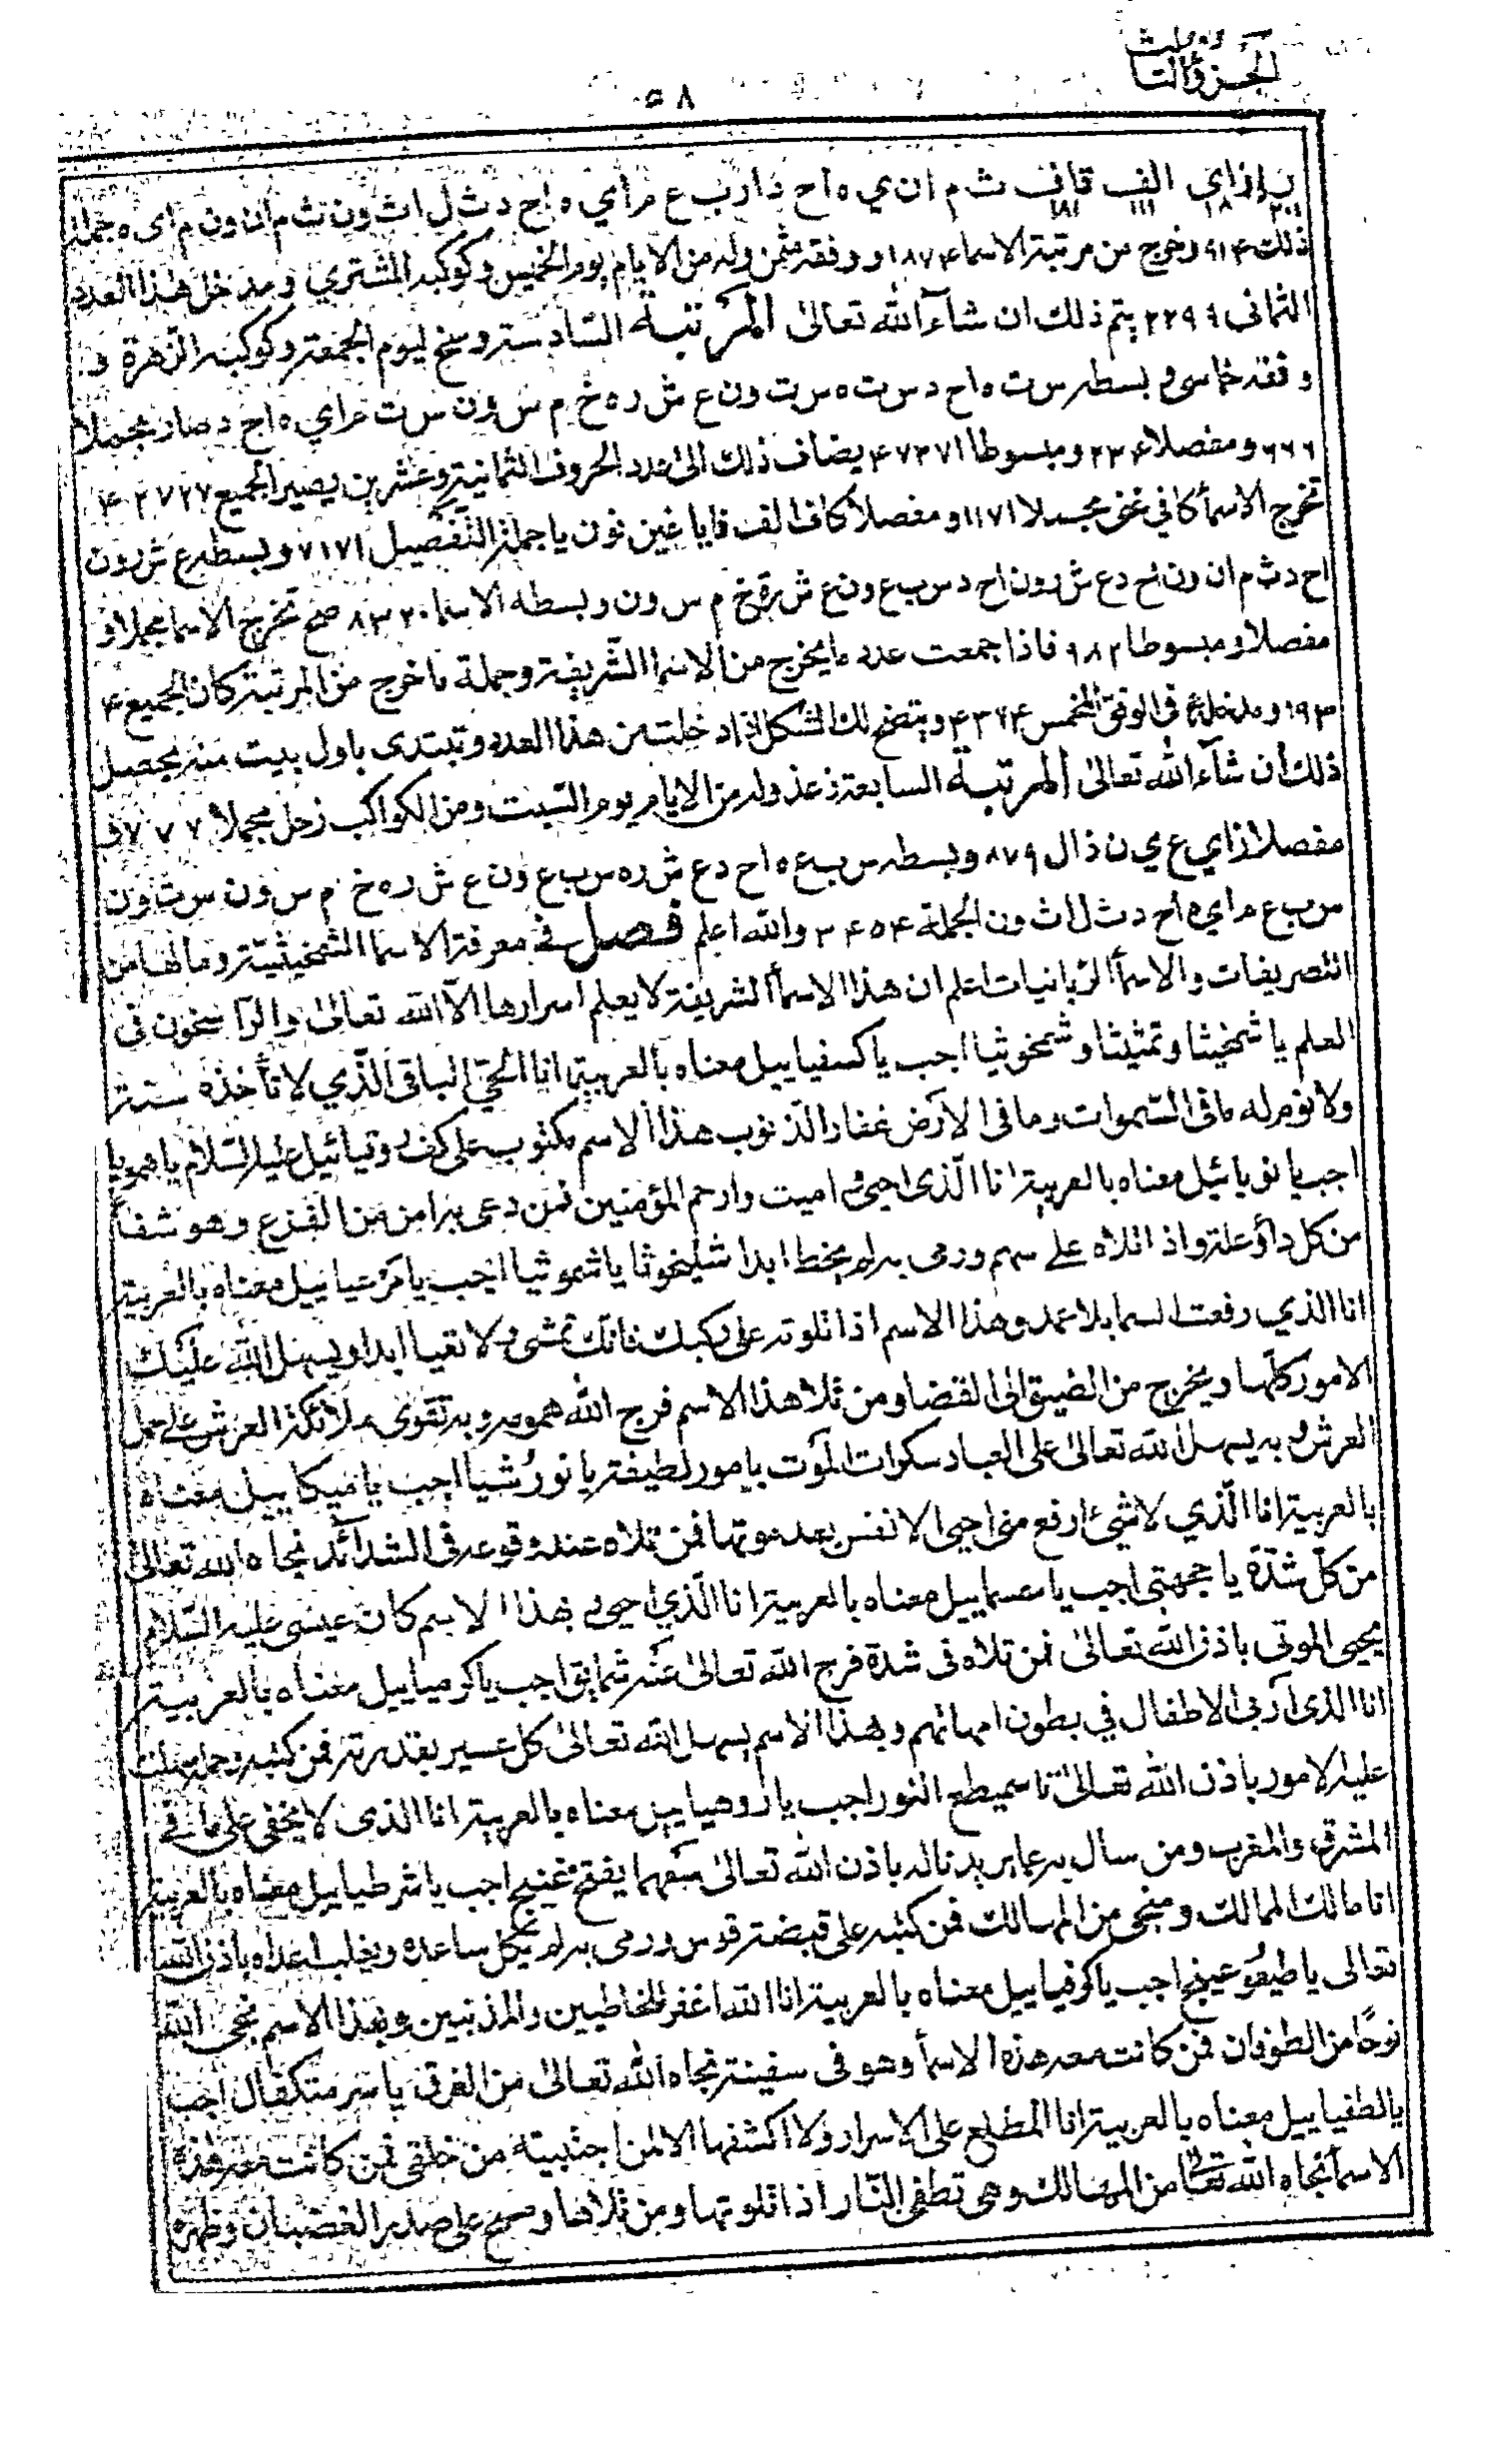 الجزؤالثالث
٥٨
زاي الف قاف ث م ان ي ه اح د ارب ع م اي ه اح د ث ل اث ون ث م ان ون م اي ه جملة
ذلك ٩١٤ وخرج من مرتبة الاسما ١٨٧٤ ووفقه مثمن وله من الايام يوم الخميس وكوكبه المشتري ومدخل هذا العدد
الثمانى ٢٢٩٩ يتم ذلك ان شاء الله تعالى المرتبة السادسة وسخ ليوم الجمعة وكوكبه الزهرة و
وفقه خماسى وبسطه س ت ه اح د س ت ه س ت ون ع ش ر ه خ م س ون س ت م اي ه اح د صار مجملا
٦٦٦ ومفصلا ٢٣٤ ومبسوطا ٤٧٣٧١ يضاف ذلك الى عدد الحروف الثمانية وعشرين يصير الجميع ٤٢٧٢٧
تخرج الاسما كافي غنى مجملا ١١٧١ ومفصلا كاف الف فا يا غين نون يا جملة التفصيل ٧١٧١ وبسطه ع ش رون
اح د ث م ان ون اح د ع ش رون اح د س ب ع ون ع ش رة خ م س ون وبسطه الاسما ٨٣٢٠ صح تخرج الاسما مجملا و
مفصلا ومبسوطا ٩٨٢ فاذا جمعت عدد ما يخرج من الاسما الشريفة وجملة ما خرج من المرتبة كان الجميع ٤
١٩٣ ومدخله فى الوفق المخمس ٤٣٧٤ ويتضح لك الشكل اذا دخلت من هذا العدد وتبتدى باول بيت منه يحصل
ذلك ان شاء الله تعالى المرتبة السابعة زعذ وله من الايام يوم السبت ومن الكواكب زحل مجملا ٧٧٧ و
مفصلا زاي ع ي ن ذال ٨٧٩ وبسطه س ب ع ه اح د ع ش ر ه س ب ع ون ع ش ر ه خ م س ون س ت ون
س ب ع م اي ه اح د ث ل اث ون الجملة ٣٤٥٤ والله اعلم فصل في معرفة الاسما الشمخيثية وما لها من
التصريفات والاسما الربانيات اعلم ان هذا الاسما الشريفة لا يعلم اسرارها الا الله تعالى والراسخون في
العلم يا شمخيثا وتمثيثا وشمخوثيا اجب يا كسفياييل معناه بالعربية انا الحي الباقى الذي لا تأخذه سنة
ولا نوم له ما فى السموات وما فى الارض غفار الذنوب هذا الاسم مكتوب على كف روقيائيل عليه السلام ياهمويا
اجب يا نويائيل معناه بالعربية انا الذى احيى واميت وارحم المؤمنين فمن دعى به امن من الفزع وهو شفاء
من كل داؤ علة واذ اتلاه على سهم ورمى به لم يخط ابدا شليخوثا يا شموثيا اجب يا مزعياييل معناه بالعربية
انا الذي رفعت السما بلا عمد وهذا الاسم اذا تلوته على ركبك فانك تمشى ولا تعيا ابدا ويسهل الله عليك
الامور كلها ويخرج من الضيق الى الفضا ومن تلا هذا الاسم فرج الله همومه وبه تقوى ملائكة العرش على حمل
العرش وبه يسهل الله تعالى على العباد سكرات الموت بامور لطيفة يا نور شيا اجب يا ميكاييل معناه
بالعربية انا الذي لا شئ ارفع منى احيى الانفس بعد موتها فمن تلاه عند وقوعه فى الشدائد نجاه الله تعالى
من كل شدة يا ججهتى اجب يا عسماييل معناه بالعربية انا الذي احيى بهذا الاسم كان عيسى عليه السلام
يحيى الموتى باذن الله تعالى فمن تلاه فى شدة فرج الله تعالى عنه شمايق اجب يا كرمياييل معناه بالعربية
انا الذى اربى الاطفال في بطون امهاتهم وبهذا الاسم يسهل الله تعالى كل عسير بقدرته فمن كتبه وحمله سهلت
عليه الامور باذن الله تعالى تاسميطع النور اجب يا روهياييل معناه بالعربية انا الذى لا يخفى على ما في
المشرق والمغرب ومن سال به عما يريد ناله باذن الله تعالى سقهما يفتح غنيج اجب يا شرطياييل معناه بالعربية
انا مالك الممالك ومنجى من المهالك فمن كتبه على قبضة قوس ورمى به لم يكل ساعده ويغلب اعداه باذن الله
تعالى يا طيفوعينج اجب يا كوفياييل معناه بالعربية انا الله اغفر للخاطيين والمذنبين وبهذا الاسم نجى الله
نوحا من الطوفان فمن كانت معه هذه الاسما وهو فى سفينة نجاه الله تعالى من الغرق يا سرمتكفال اجب
يا لطفياييل معناه بالعربية انا المطلع على الاسرار ولا اكشفها الا لمن اجتبيته من خلقى فمن كانت معه هذه
الاسما نجاه الله تعالى من المهالك وهى تطفى النار اذا تلوتها ومن تلاها ومسح على صدر الغضبان وظهره